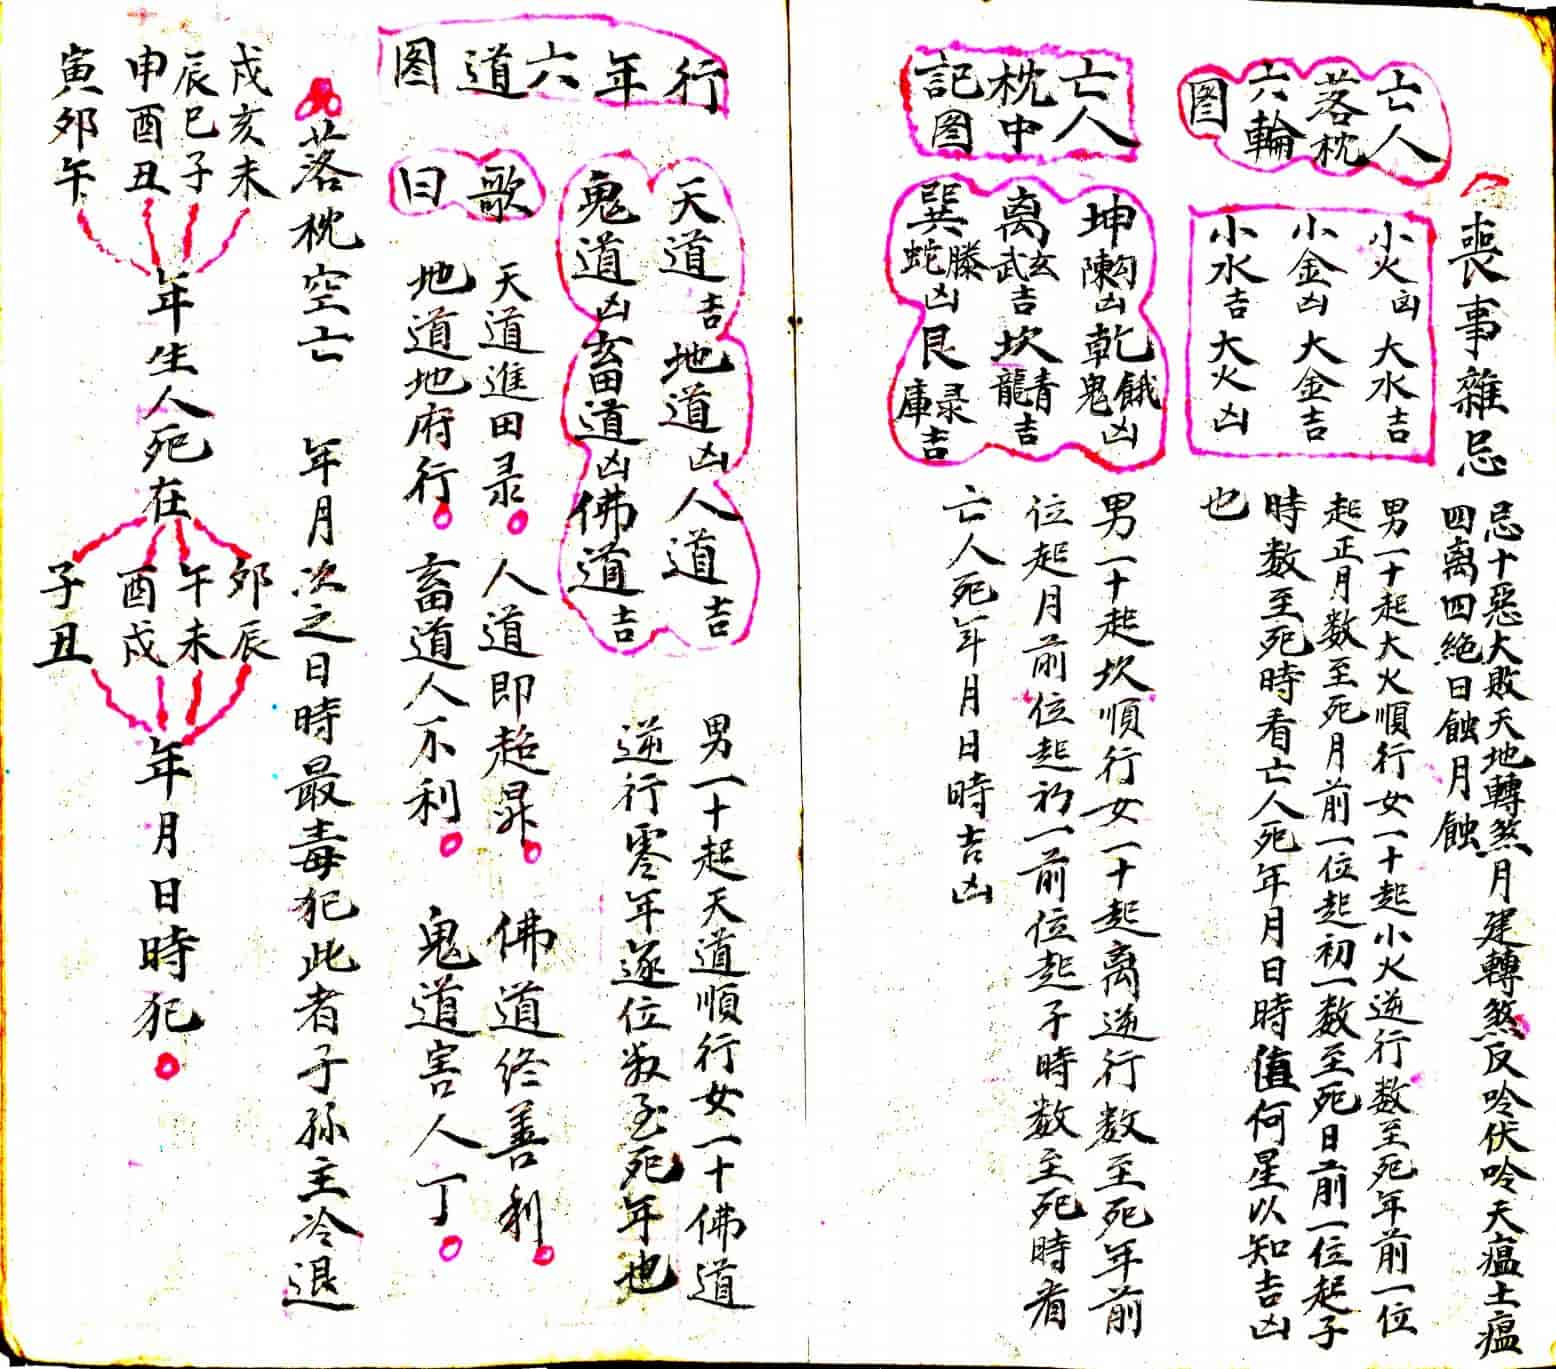 喪事雜忌
忌十惡大敗天地轉煞月建轉煞反吟伏吟天瘟土瘟
四离四絶日蝕月蝕
亡人
落枕
六輪
图
小火凶大水吉
小金凶大金吉
小水吉大火凶
男一十起大火順行女一十起小火逆行数至死年前一位
起正月数至死月前一位起初一数至死日前一位起子
時数至死時看亡人死年月日時值何星以知吉凶
也
亡人
枕中
記图
坤勾陳凶乾餓鬼凶
离玄武吉坎青龍吉
巽螣蛇凶艮录庫吉
男一十起坎順行女一十起离逆行数至死年前
位起月前位起初一前位起子時数至死時看
亡人死年月日時吉凶
行年六道图
天道吉地道凶人道吉
鬼道凶畜道凶佛道吉
男一十起天道順行女一十佛道
逆行零年逐位数至死年也
歌
曰
天道進田录。人道即超昇。佛道终善利。
地道地府行。畜道人不利。鬼道害人丁。
落枕空亡 年月次之日時最毒犯此者子孫主冷退
戌亥未
辰巳子
申酉丑
寅卯午
年生人死在
卯辰
午未
酉戌
子丑
年月日時犯。